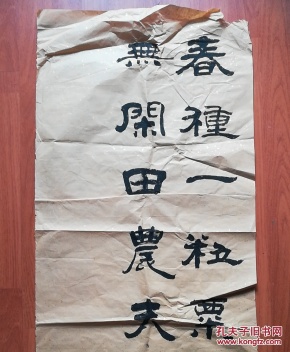 春種一粒粟
無閑田農夫
孔夫子旧书网
www.kongfz.com